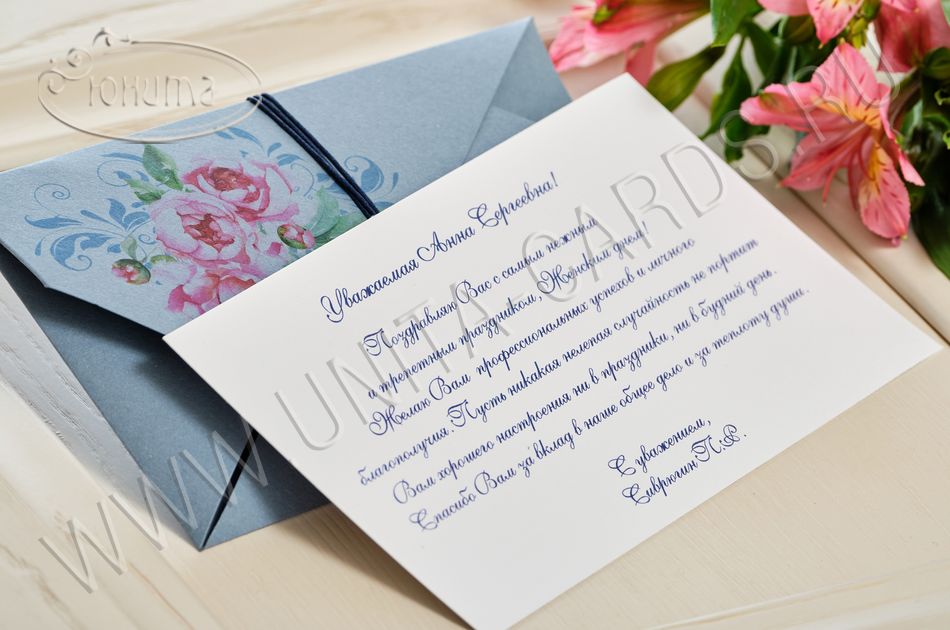 Юнита
Уважаемая Анна Сергеевна!
Поздравляю Вас с самым нежным
и трепетным праздником, Женским днем!
Желаю Вам профессиональных успехов и личного
благополучия. Пусть никакая нелепая случайность не портит
Вам хорошего настроения ни в праздники, ни в будний день.
Спасибо Вам за вклад в наше общее дело и за теплоту души.
С уважением,
Сиврюгин П.Я.
WWW.UNITA-CARDS.RU